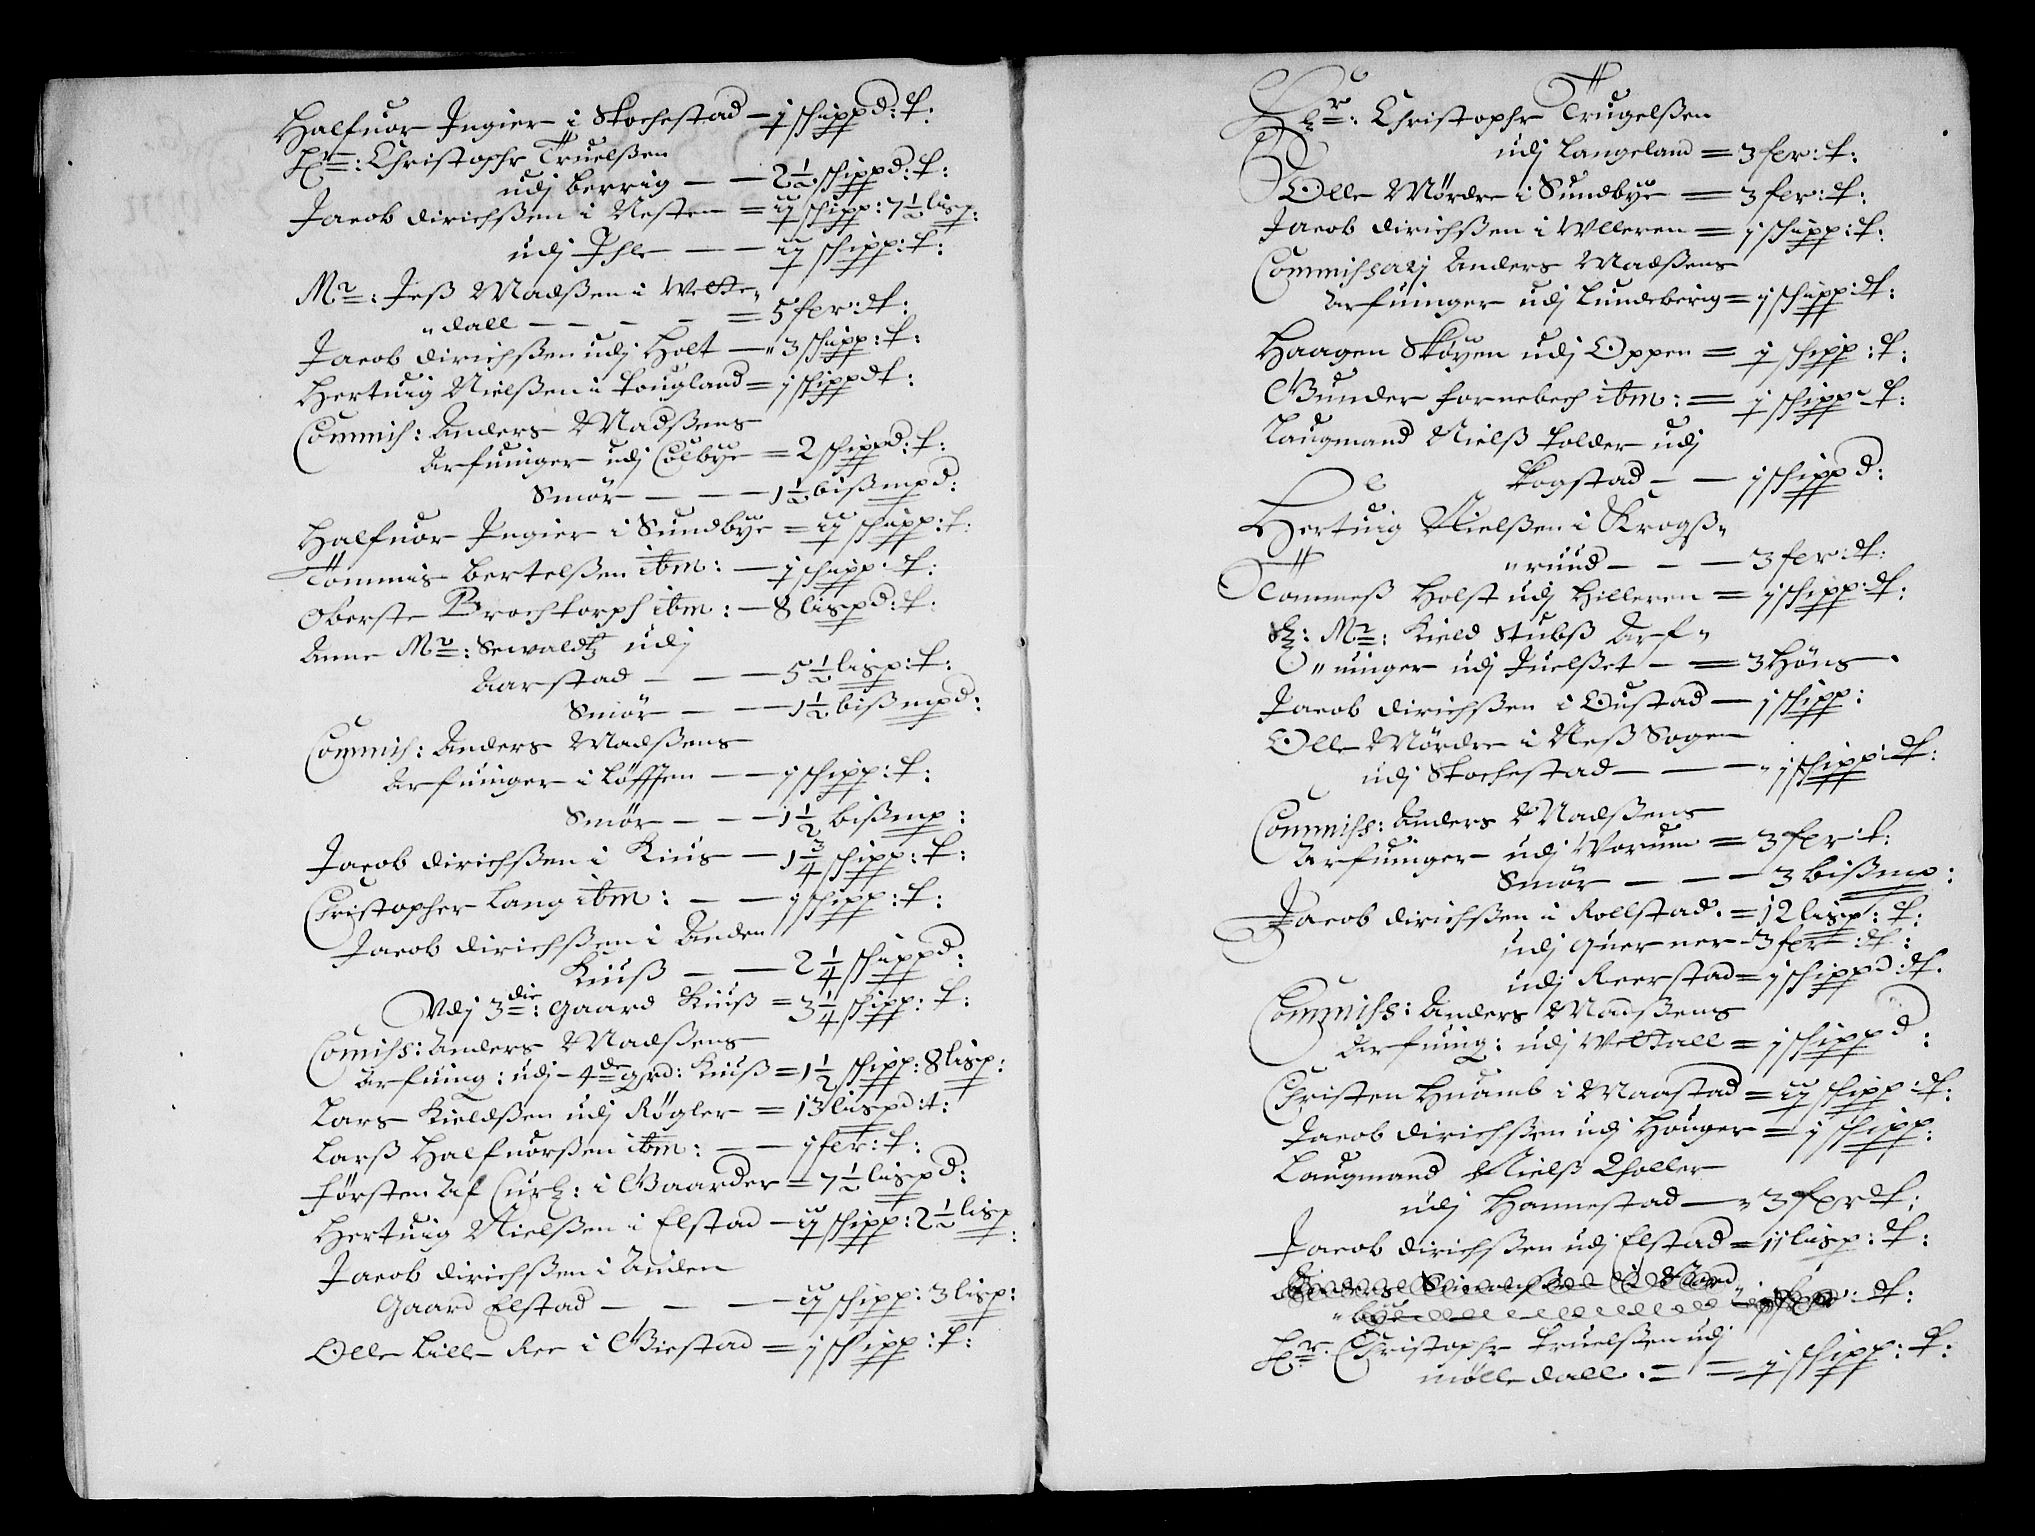 Halfuor Jngier i Stochestad – j schippd: t:
Hr: Christophr Truelßen
udj berrig – – 2½ schippd: t:
Jacob dirichßen i Nesten = ij schipp: 7½ lisp:
udj Ihle – – ij schipp: t:
Mr: Jeß Madßen i Vette„
„dall – – – – = 5 fer: t:
Jacob dirichßen udj Holt – „ 3 schipp: t:
Hertuig Nielßen i Lougland = j schippd t:
Commiss: Anders Madßens
Arfuinger udj Colbye = 2 schippd: t:
Smør – – – 1½ bißmpd:
Halfuor Jngier i Sundbye = ij schipp: t:
Tommis bertelßen ibm: – j schipp: t:
Oberste Brochtorph ibm: – 8 lispd: t:
Anne Mr: Sewaldtz udj
Aarstad – – – 5½ lisp: t:
Smør – – – 1½ bißmpd:
Commiss: Anders Madßens
Arfuinger i Løffsen – – j schipp: t:
Smør – – – 1½ bißmp:
Jacob dirichßen i Kius – 1¾ schipp: t:
Christopher Lang ibm: – – j schipp: t:
Jacob dirichßen i Anden
Kiuß – – 2¼ schippd:
Vdj 3die: Gaard Kiuß = 3¼ schipp: t:
Comiss: Anders Madßens
Arfuing: udj 4de Grd: Kiuß = 1½ schipp: 8 lisp:
Lars Kieldßen udj Røgler = 13 lispd: t:
Larß Halfuorßen ibm: – – j fer: t:
Førsten Af Curl: i Gaarder = 7½ lispd:
Hertuig Nielßen i Elstad – ij schipp: 2½ lisp:
Jacob dirichßen i Anden
Gaard Elstad – – – ij schipp: 3 lisp:
Olle Lille Ree i Giestad = j schipp: t:
Hr: Christophr Trugelßen
udj Langeland = 3 fer: t:
Olle Mørdre i Sundbye = 3 fer: t:
Jacob dirichßen i Ulleren = j schipp: t:
Commissarj Anders Madßens
Arfuinger udj Lundeberig = j schipp: t:
Haagen Støyen udj Oppen = j schipp: t:
Gunder fornebech ibm: = j schipp: t:
Laugmand Nielß tolder udj
Kogstad – – j schippd:
Hertuig Nielßen i Krogß„
„rüud – – – 3 fer: t:
Tommeß Holst udj Hilleren = j schipp: t:
Sl: Mr: Kield Stubß Arf„
„uinger udj Juelßet – = 3 Høns.
Jacob dirichßen i Oustad – j schipp:
Olle Mørdre i Neß Sogen
udj Stochestad – – – „ j schipp: t:
Commiss: Anders Madßens
Arfuinger udj Vorum = 3 fer: t:
Smør – – – 3 bißmp:
Jacob dirichßen i Rollstad. = 12 lisp: t:
udj Querner – 3 fer: t:
udj Reerstad = j schippd: t.
Commiss: Anders Madßens
Arfuing: udj Vettall = j schippd:
Christen Huamb i Maastad = ij schipp: t:
Jacob dirichßen udj Houger = j schipp:
Laugmand Nielß Tholler
udj Hannestad – „ 3 fer t:
Jacob dirichßen udj Elstad = 11 lisp: t:
Anders
„bye t:
Hr. Christophr Truelßen udj
mølle dall. = = j schipp: t: